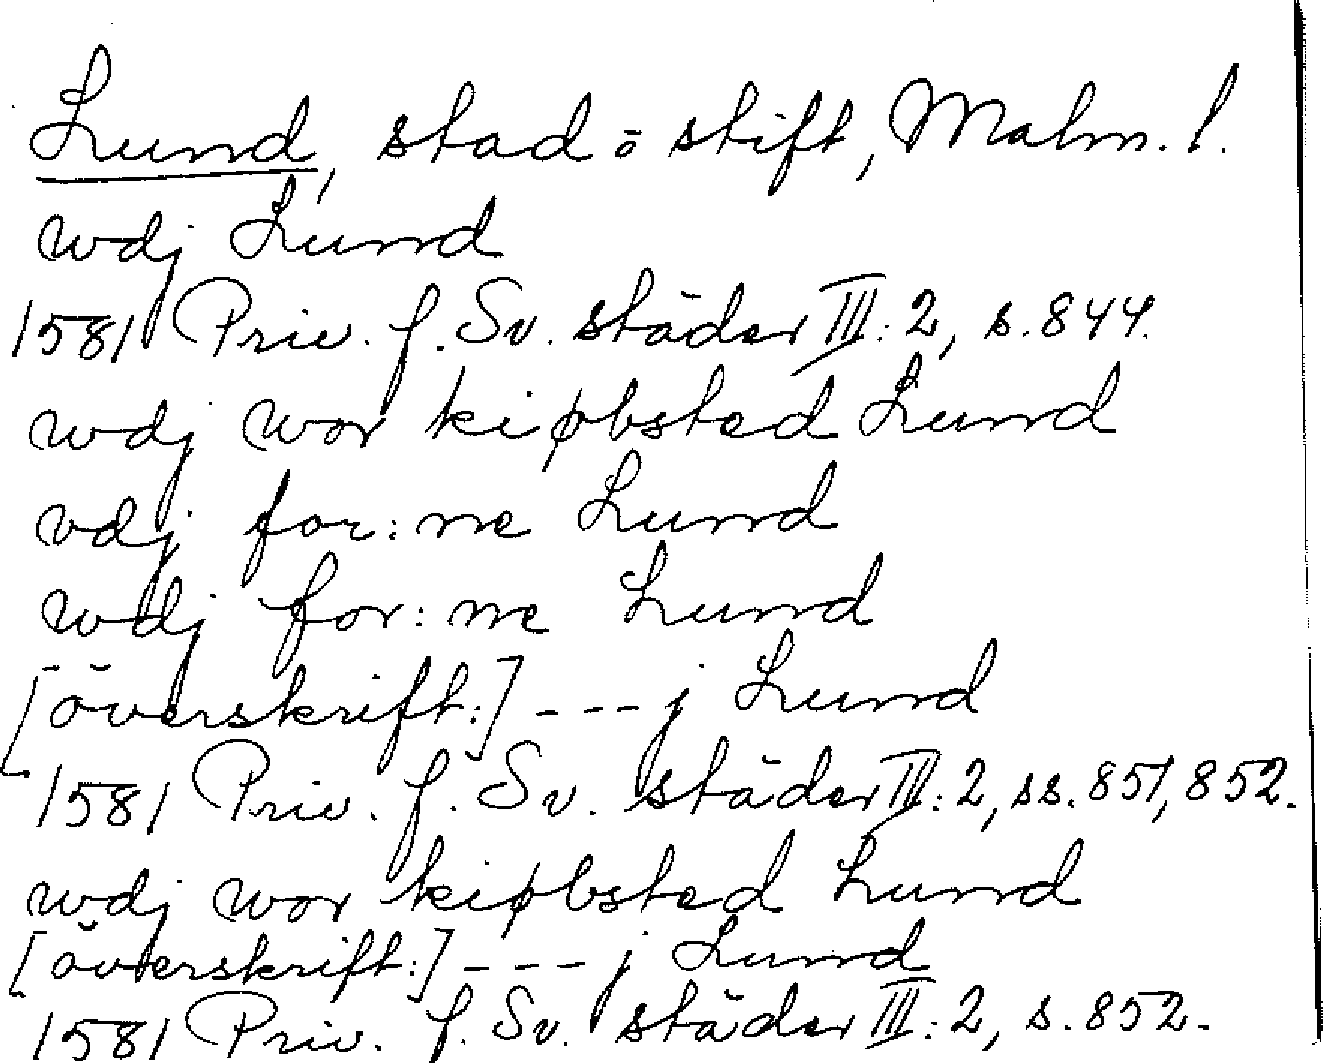 Lund, stad o stift, Malm. l.
wdj Lund
1581 Priv. f. Sv. städer III: 2, s. 844.
wdj wor kiøbsted Lund
vdj for: ne Lund
wdj for: ne Lund
[överskrift:] --- j Lund
1581 Priv. f. Sv. städer III: 2, ss. 851, 852.
wdj wor kiøbsted Lund
[överskrift:] --- j Lund
1581 Priv. f. Sv. städer III: 2, s. 852.